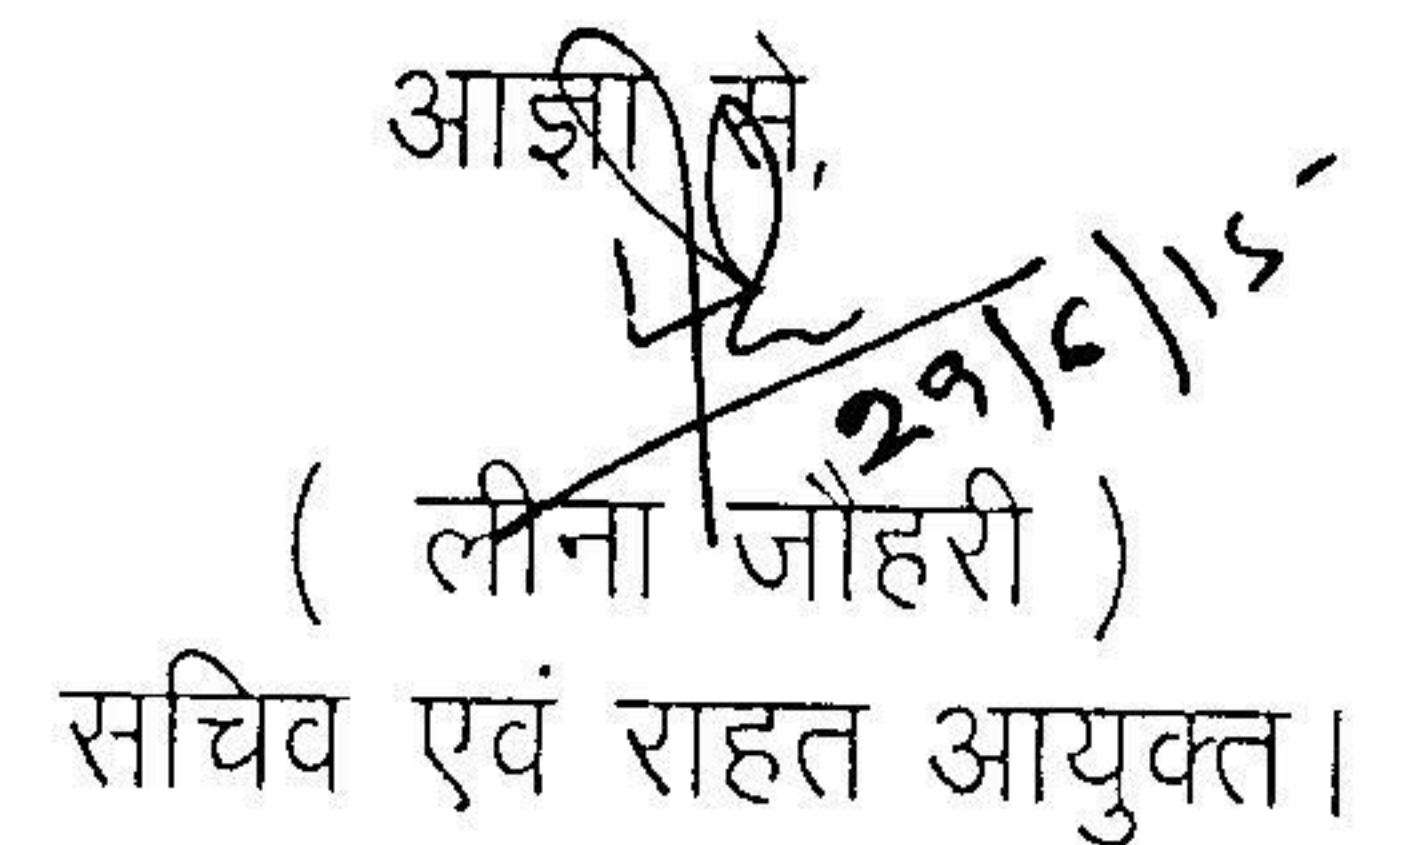 आज्ञा से,
29/6/15
( लीना जौहरी )
सचिव एवं राहत आयुक्त।